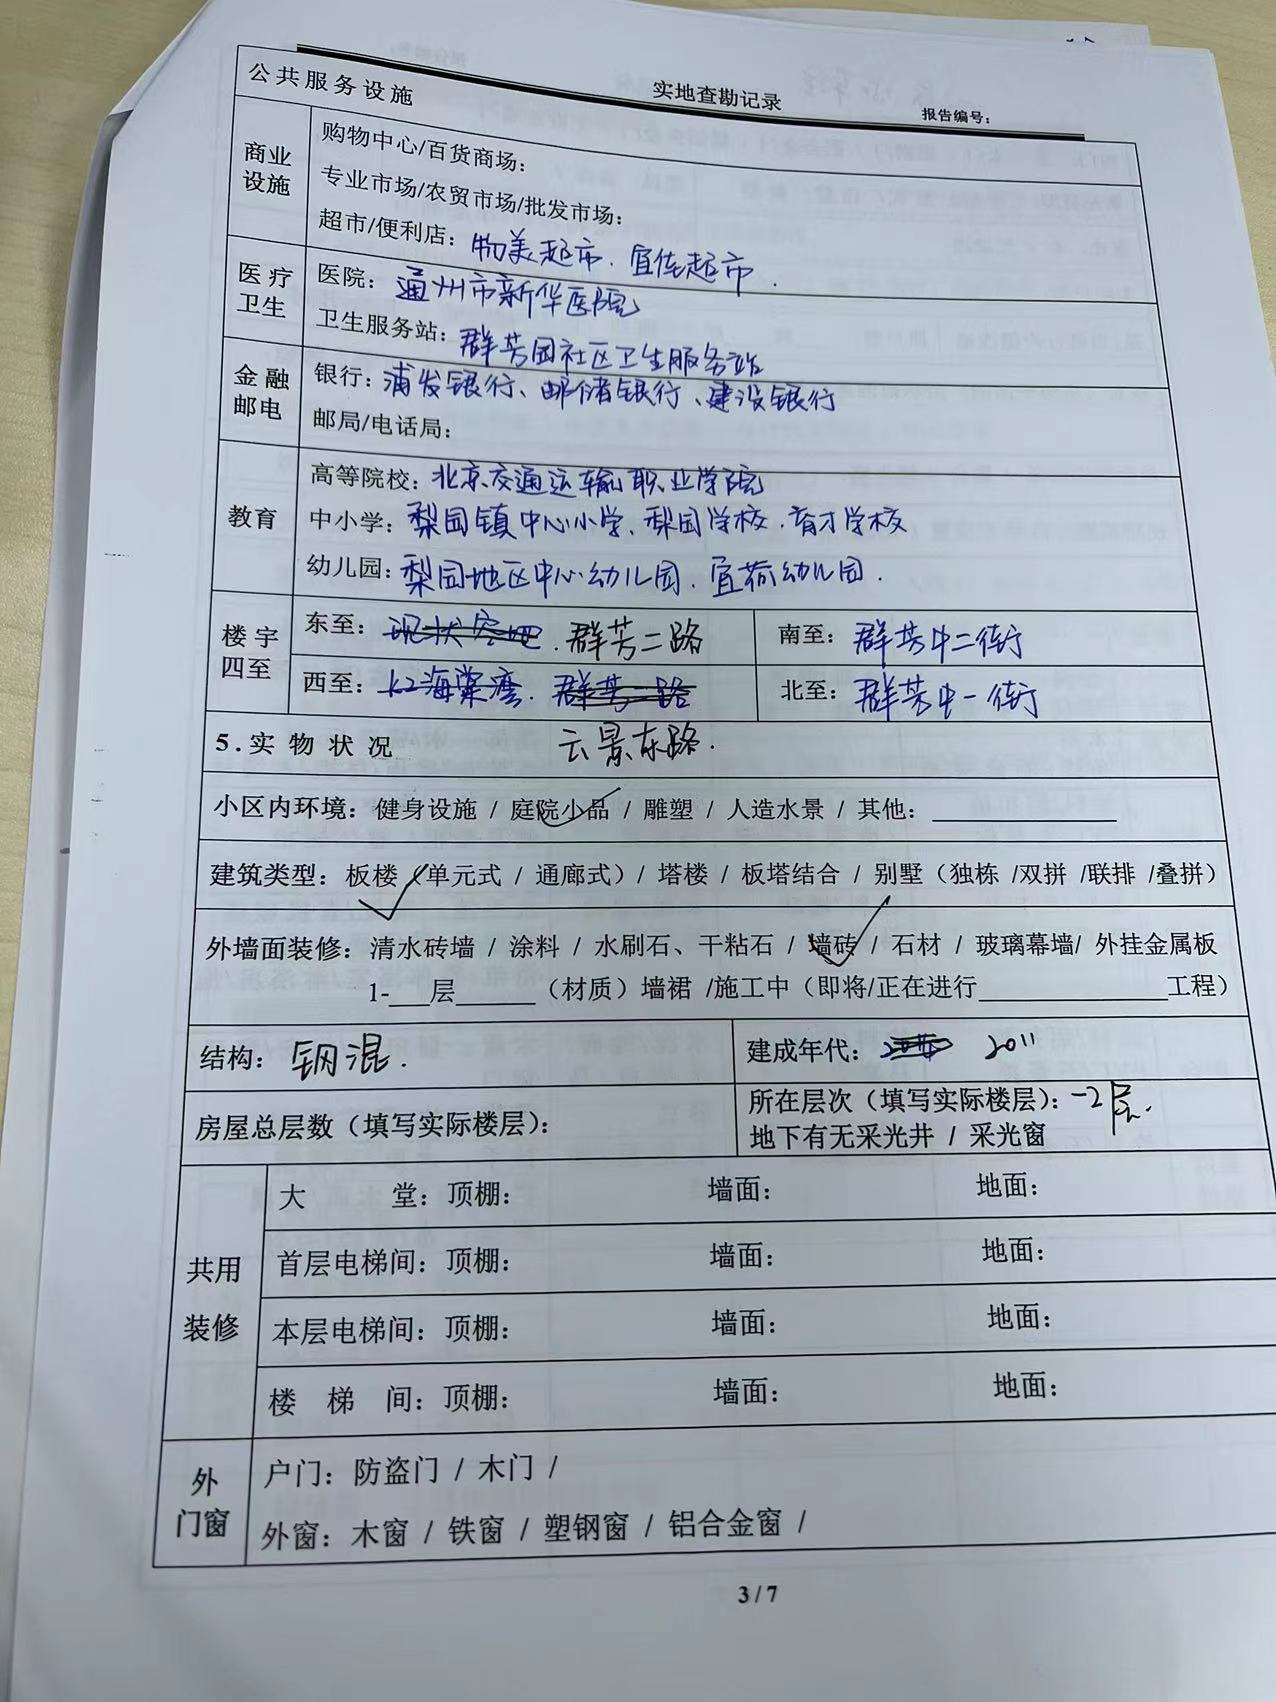 实地查勘记录
报告编号：
公共服务设施
商业设施
购物中心/百货商场：
专业市场/农贸市场/批发市场：
超市/便利店：物美超市、宜佳超市.
医疗卫生
医院：通州市新华医院
卫生服务站：群芳园社区卫生服务站
金融邮电
银行：浦发银行、邮储银行、建设银行
邮局/电话局：
教育
高等院校：北京交通运输职业学院
中小学：梨园镇中心小学、梨园学校、育才学校
幼儿园：梨园地区中心幼儿园、宜荷幼儿园.
楼宇四至
东至：现状空地.群芳二路
南至：群芳中二街
西至：海棠湾.群芳一路
北至：群芳中一街
云景东路.
5.实物状况
小区内环境：健身设施 / 庭院小品 / 雕塑 / 人造水景 / 其他：
建筑类型：板楼（单元式 / 通廊式）/ 塔楼 / 板塔结合 / 别墅（独栋 /双拼 /联排 /叠拼）
外墙面装修：清水砖墙 / 涂料 / 水刷石、干粘石 / 墙砖 / 石材 / 玻璃幕墙/ 外挂金属板
1-___层______（材质）墙裙 /施工中（即将/正在进行______________工程）
结构：钢混.
建成年代： 2011
房屋总层数（填写实际楼层）：
所在层次（填写实际楼层）：-2层.
地下有无采光井 / 采光窗
共用装修
大 堂：顶棚： 墙面： 地面：
首层电梯间：顶棚： 墙面： 地面：
本层电梯间：顶棚： 墙面： 地面：
楼 梯 间：顶棚： 墙面： 地面：
外门窗
户门：防盗门 / 木门 /
外窗：木窗 / 铁窗 / 塑钢窗 / 铝合金窗 /
3 / 7